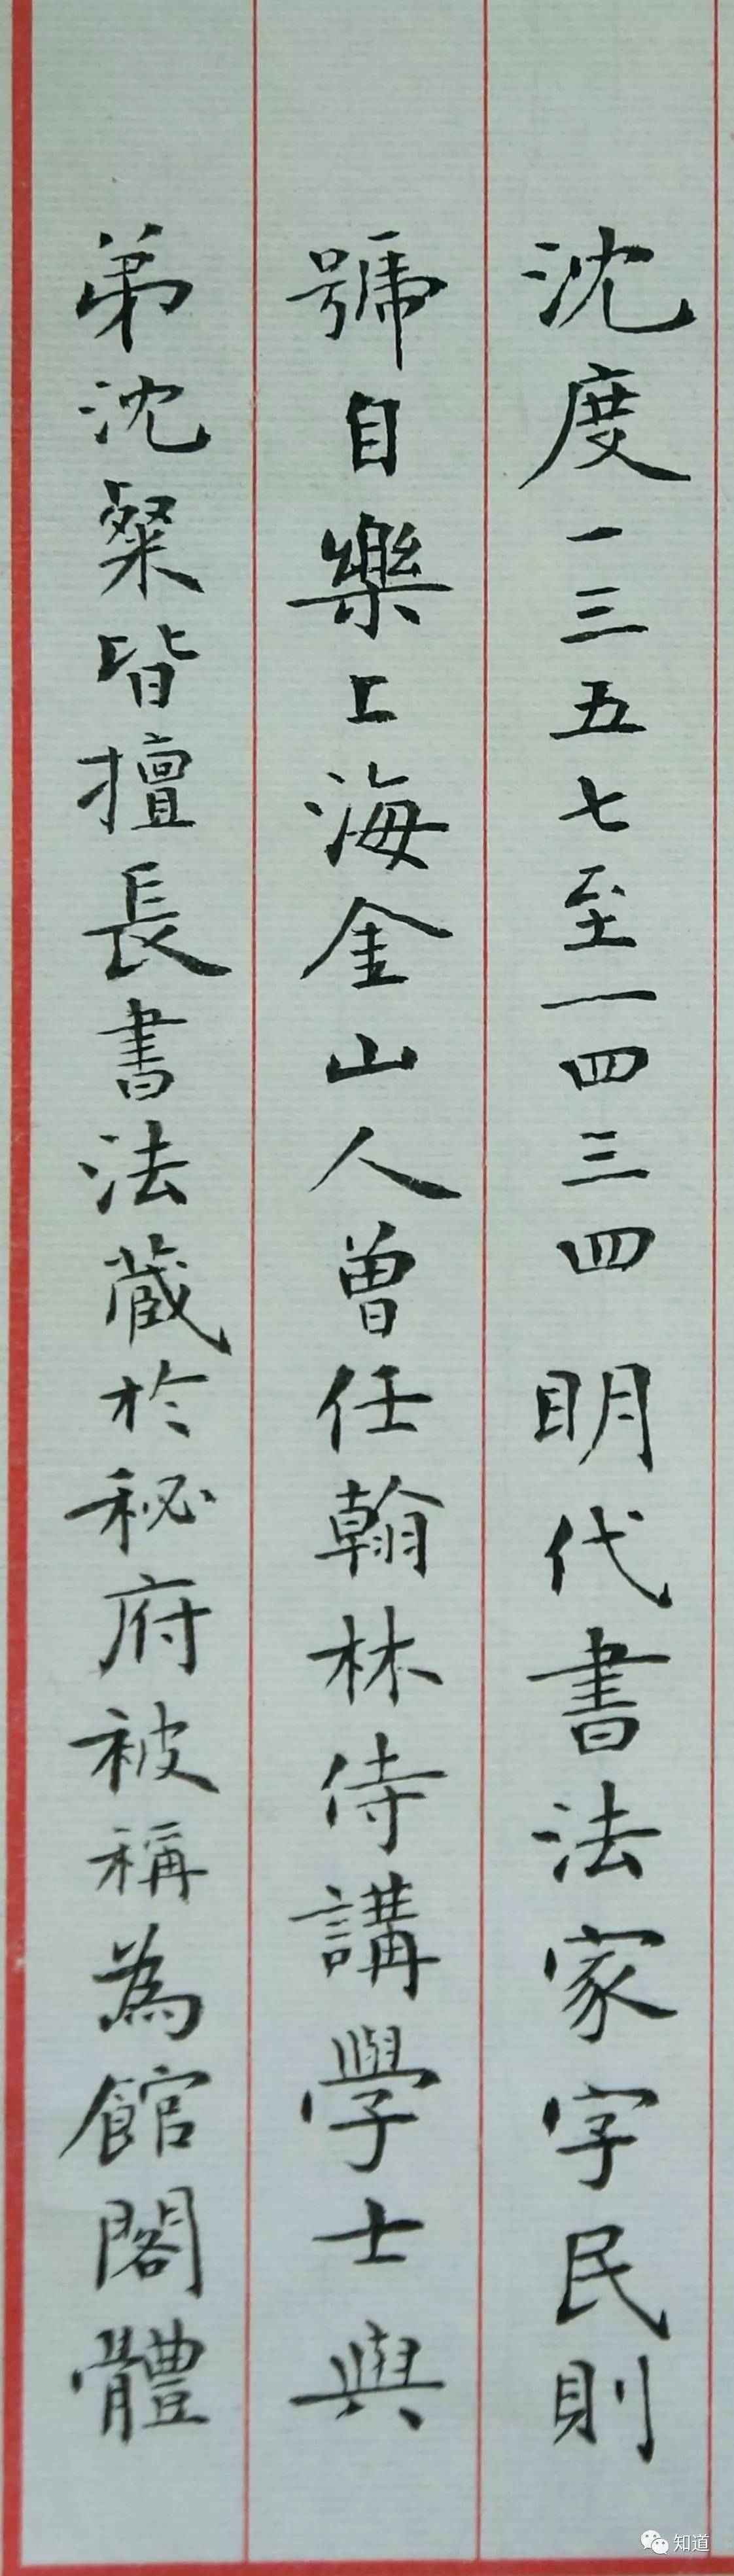 沈度一三五七至一四三四 明代書法家字民則
號自樂上海金山人曾任翰林侍講學士與
弟沈粲皆擅長書法藏於秘府被稱為館閣體
知道